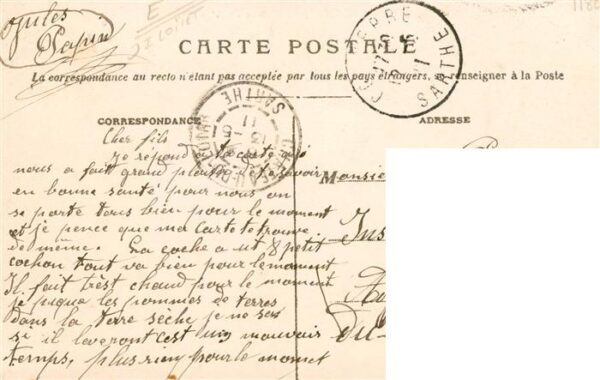 Jules
Papin
E
CARTE POSTALE
La correspondance au recto n'étant pas acceptée par tous les pays étrangers, se renseigner à la Poste
SARTHE
SARTHE
CORRESPONDANCE
ADRESSE
Cher fils
Je répond ta carte qui
nous a fait grand plaisir de te savoir
en bonne santé pour nous on
se porte tous bien pour le moment
et je pence que ma carte te trouve
de même. La coche a ut 8 petit
cochon tout va bien pour le moment
Il fait trèst chaud pour le moment
je pique les pommes de terres
dans la terre sèche je ne sai
si il leveront cest un mauvais
temps, plus rien pour le momet
Monsie
Ins
du